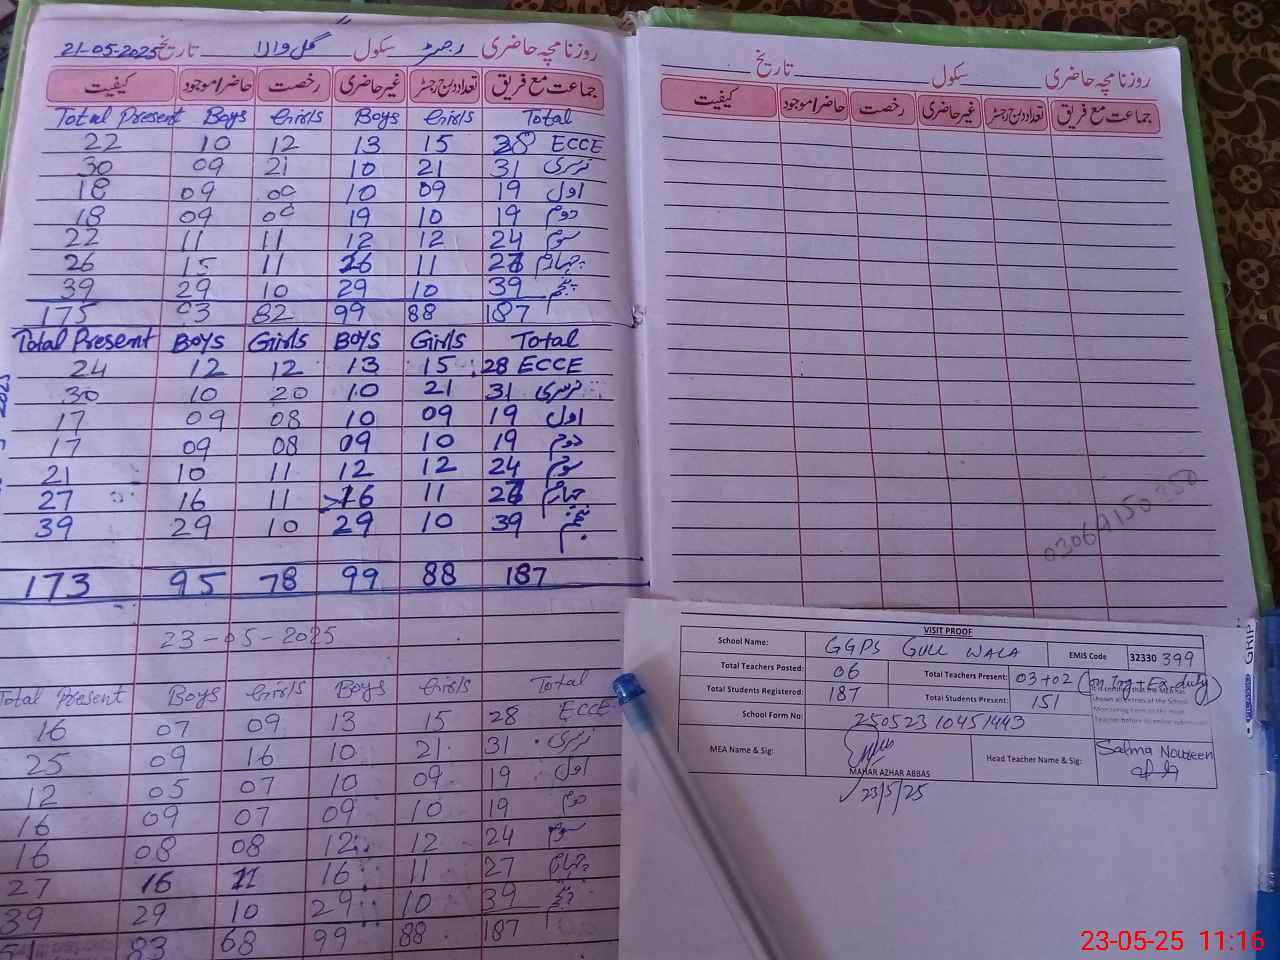 روزنامچہ حاضری رجسٹر سکول گل والا تاریخ 21-05-2025
جماعت مع فریق تعداد درج رجسٹر غیر حاضری رخصت حاضر/موجود کیفیت
Total Present Boys Girls Boys Girls Total
22 10 12 13 15 28 ECCE
30 09 21 10 21 31 نرسری
18 09 09 10 09 19 اول
18 09 09 19 10 19 دوم
22 11 11 12 12 24 سوم
26 15 11 26 11 27 چہارم
39 29 10 29 10 39 پنجم
175 93 82 99 88 187
Total Present Boys Girls Boys Girls Total
24 12 12 13 15 28 ECCE
30 10 20 10 21 31 نرسری
17 09 08 10 09 19 اول
17 09 08 09 10 19 دوم
21 10 11 12 12 24 سوم
27 16 11 16 11 27 چہارم
39 29 10 29 10 39 پنجم
173 95 78 99 88 187
23-05-2025
Total Present Boys Girls Boys Girls Total
16 07 09 13 15 28 ECCE
25 09 16 10 21 31 نرسری
12 05 07 10 09 19 اول
16 09 07 09 10 19 دوم
16 08 08 12 12 24 سوم
27 16 11 16 11 27 چہارم
39 29 10 29 10 39 پنجم
51 83 68 99 88 187
روزنامچہ حاضری سکول تاریخ
جماعت مع فریق تعداد درج رجسٹر غیر حاضری رخصت حاضر/موجود کیفیت
VISIT PROOF
School Name: GGPS GULL WALA EMIS Code 32330 399
Total Teachers Posted: 06 Total Teachers Present: 03+02 (on Trg + Ex. duty)
Total Students Registered: 187 Total Students Present: 151
School Form No: 25052310451443
MEA Name & Sig: MAHAR AZHAR ABBAS Head Teacher Name & Sig: Salma Noureen
23/5/25
GRIP
23-05-25 11:16